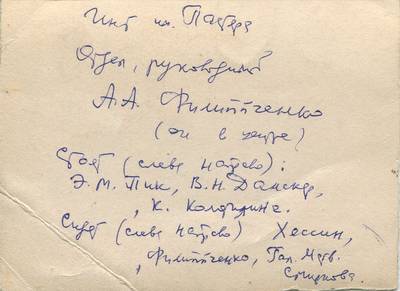 Инт им. Пастера
Отдел, руководит
А.А. Филипченко
(он в центре)
Стоят (слева направо):
Э.М. Пик, В.Н. Данскер,
, К. Колдидина.
Сидят (слева направо) Хессин,
, Филипченко, Гал. Матв.
Смирнова.